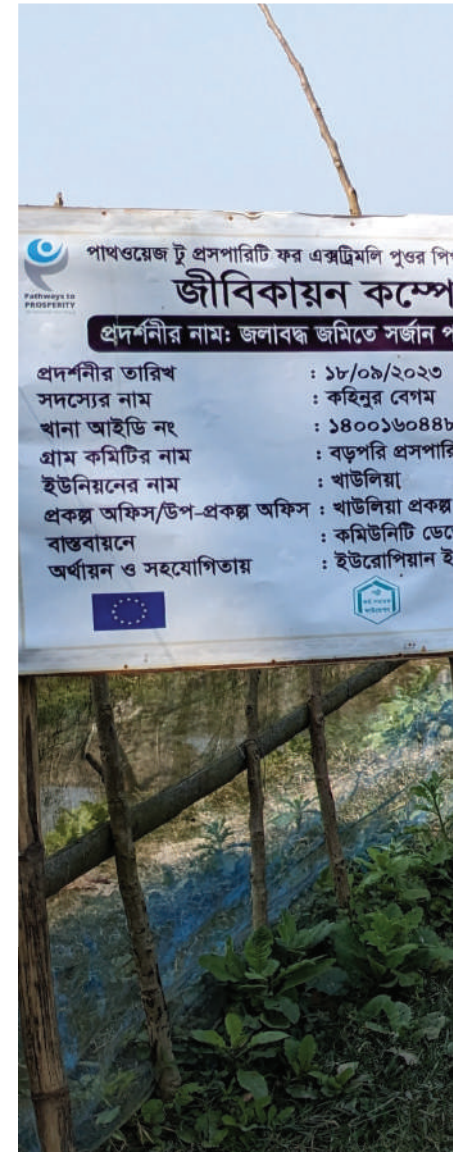 পাথওয়েজ টু প্রসপারিটি ফর এক্সট্রিমলি পুওর
Pathways to
PROSPERITY
জীবিকায়ন কম্পো
প্রদর্শনীর নাম: জলাবদ্ধ জমিতে সর্জান
প্রদর্শনীর তারিখ : ১৮/০৯/২০২৩
সদস্যের নাম : কহিনুর বেগম
খানা আইডি নং : ১৪০০১৬০৪৪৮
গ্রাম কমিটির নাম : বড়পরি প্রসপারি
ইউনিয়নের নাম : খাউলিয়া
প্রকল্প অফিস/উপ-প্রকল্প অফিস : খাউলিয়া প্রকল্প
বাস্তবায়নে : কমিউনিটি ডেভে
অর্থায়ন ও সহযোগিতায় : ইউরোপিয়ান ই